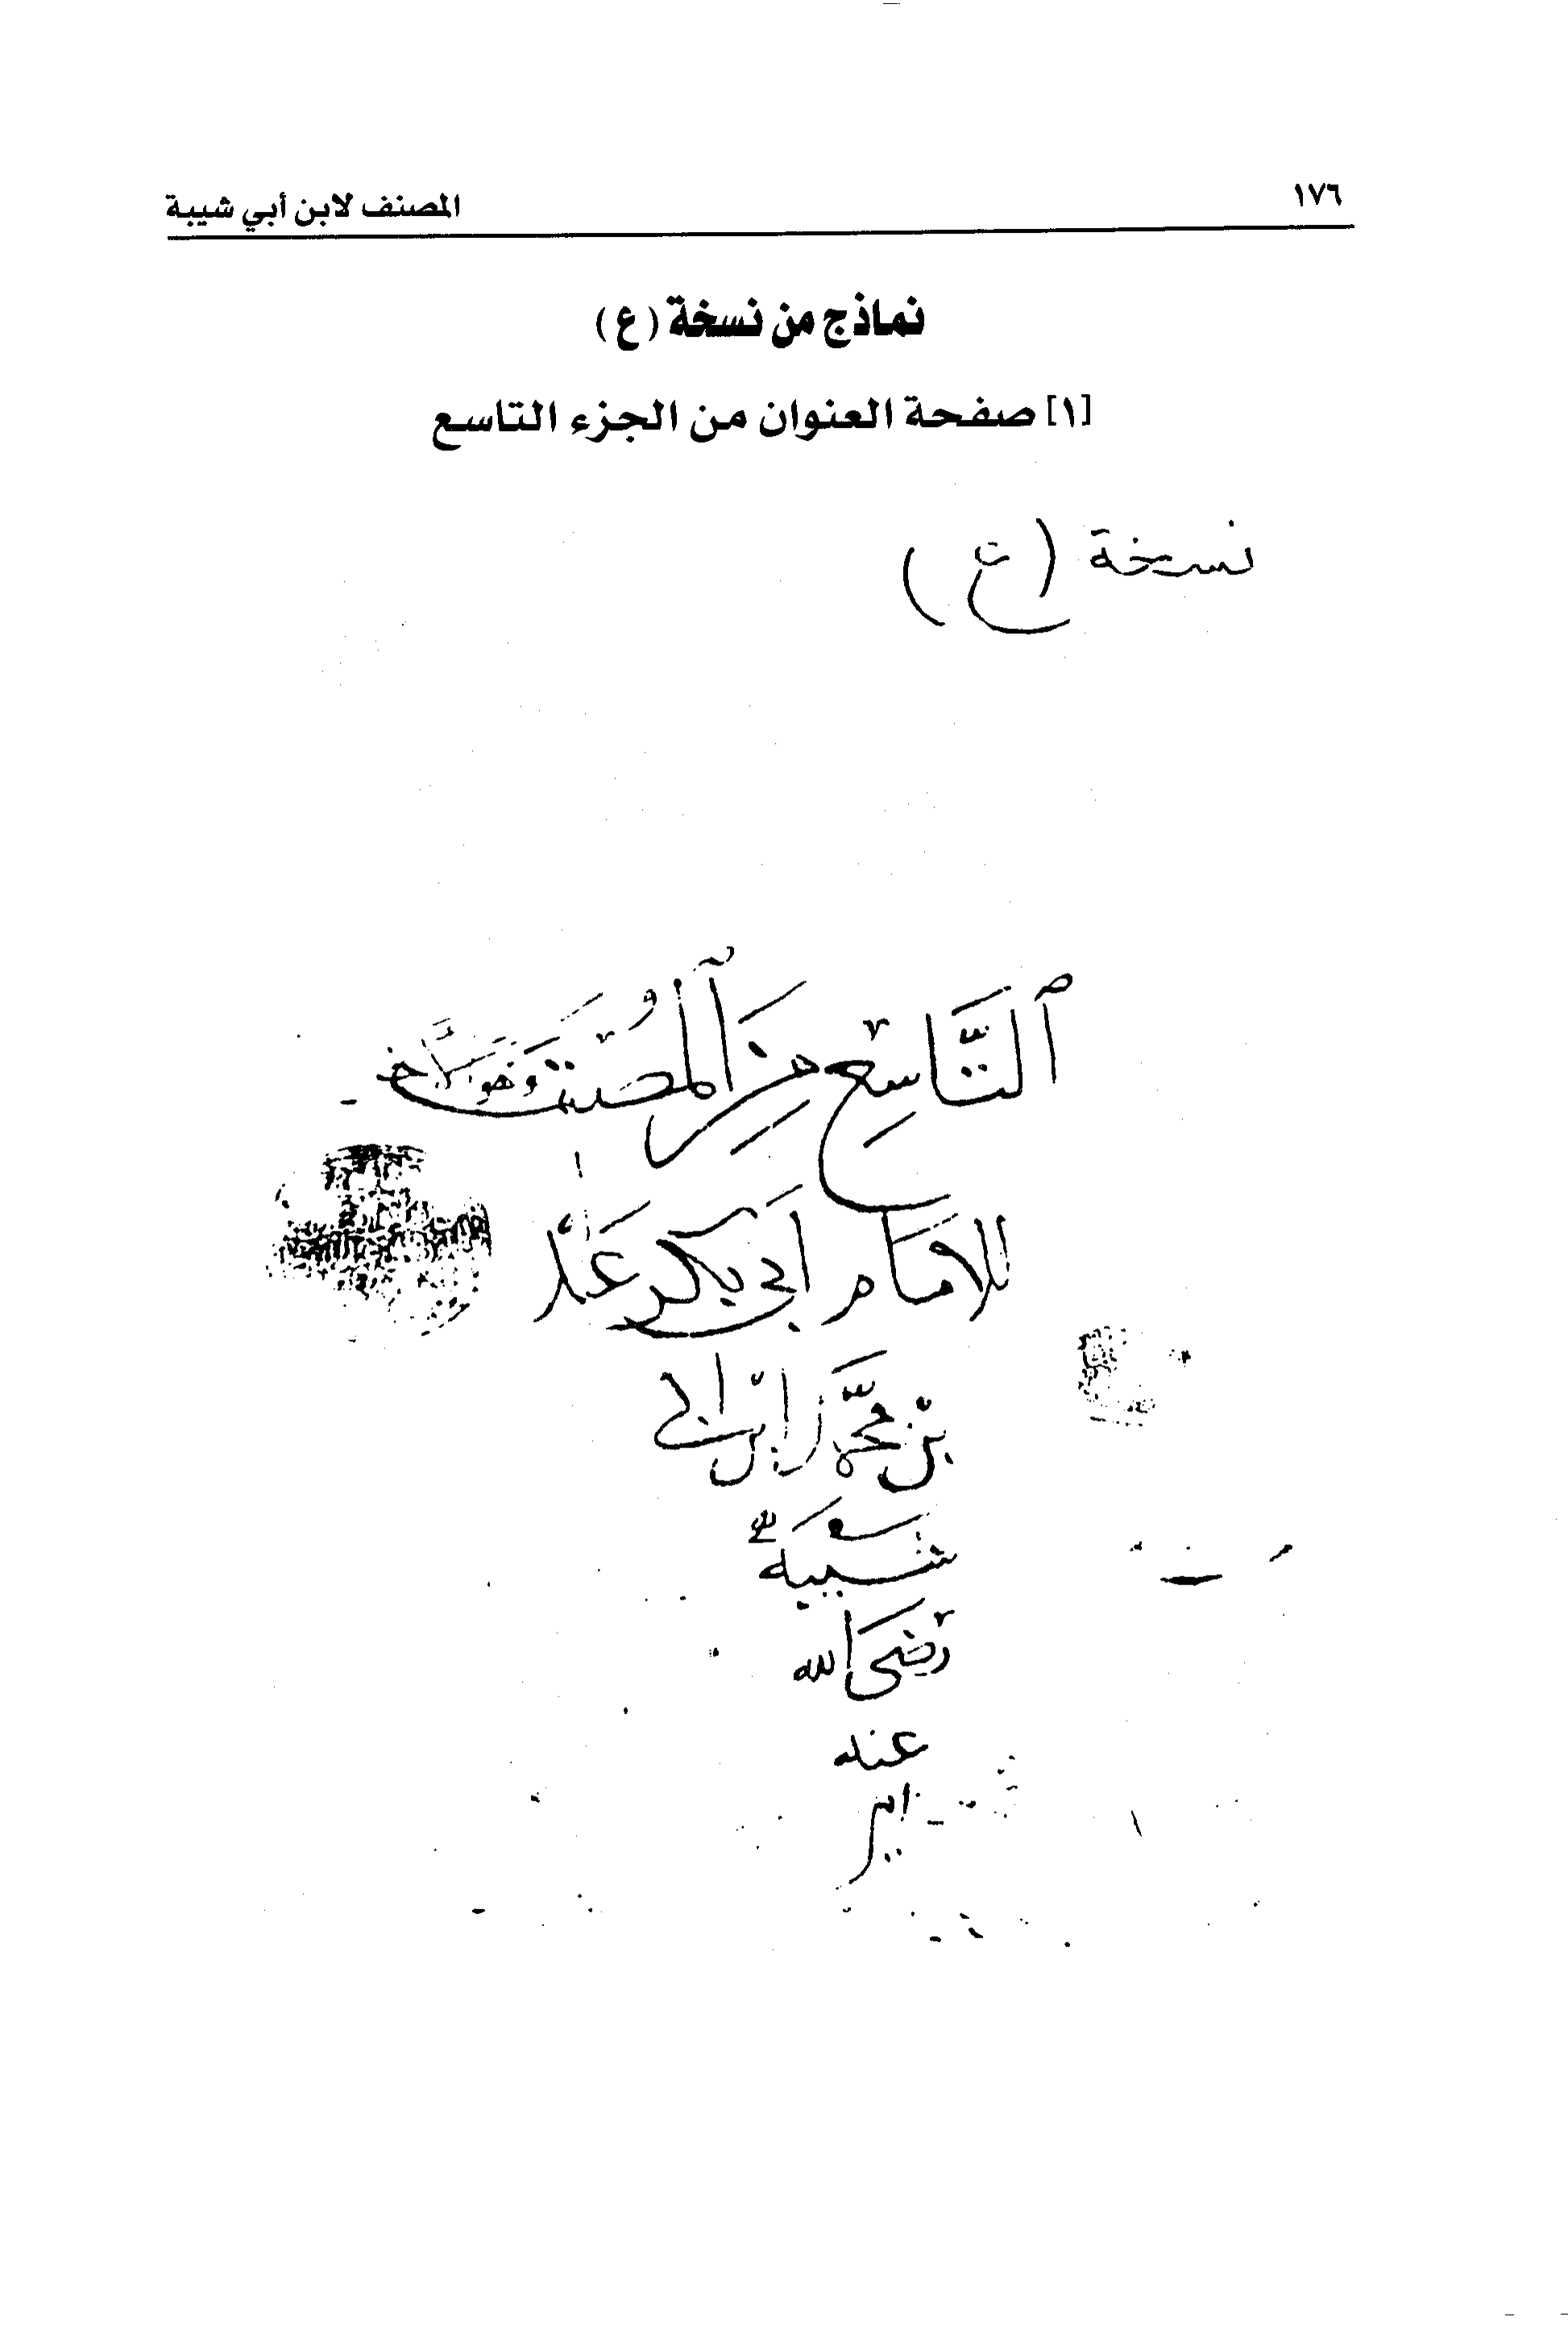 ١٧٦
المصنف لابن أبي شيبة
نماذج من نسخة (ع)
[١] صفحة العنوان من الجزء التاسع
نسخة (ع)
ٱلتَّاسِعِ مِنَ ٱلمُصَنَّف وَهُوَ الآخر
للامَام أبَي بكر عَبْد
بن محَمَّد ابن ابى
شَيبَه
رَضَى الله
عنه